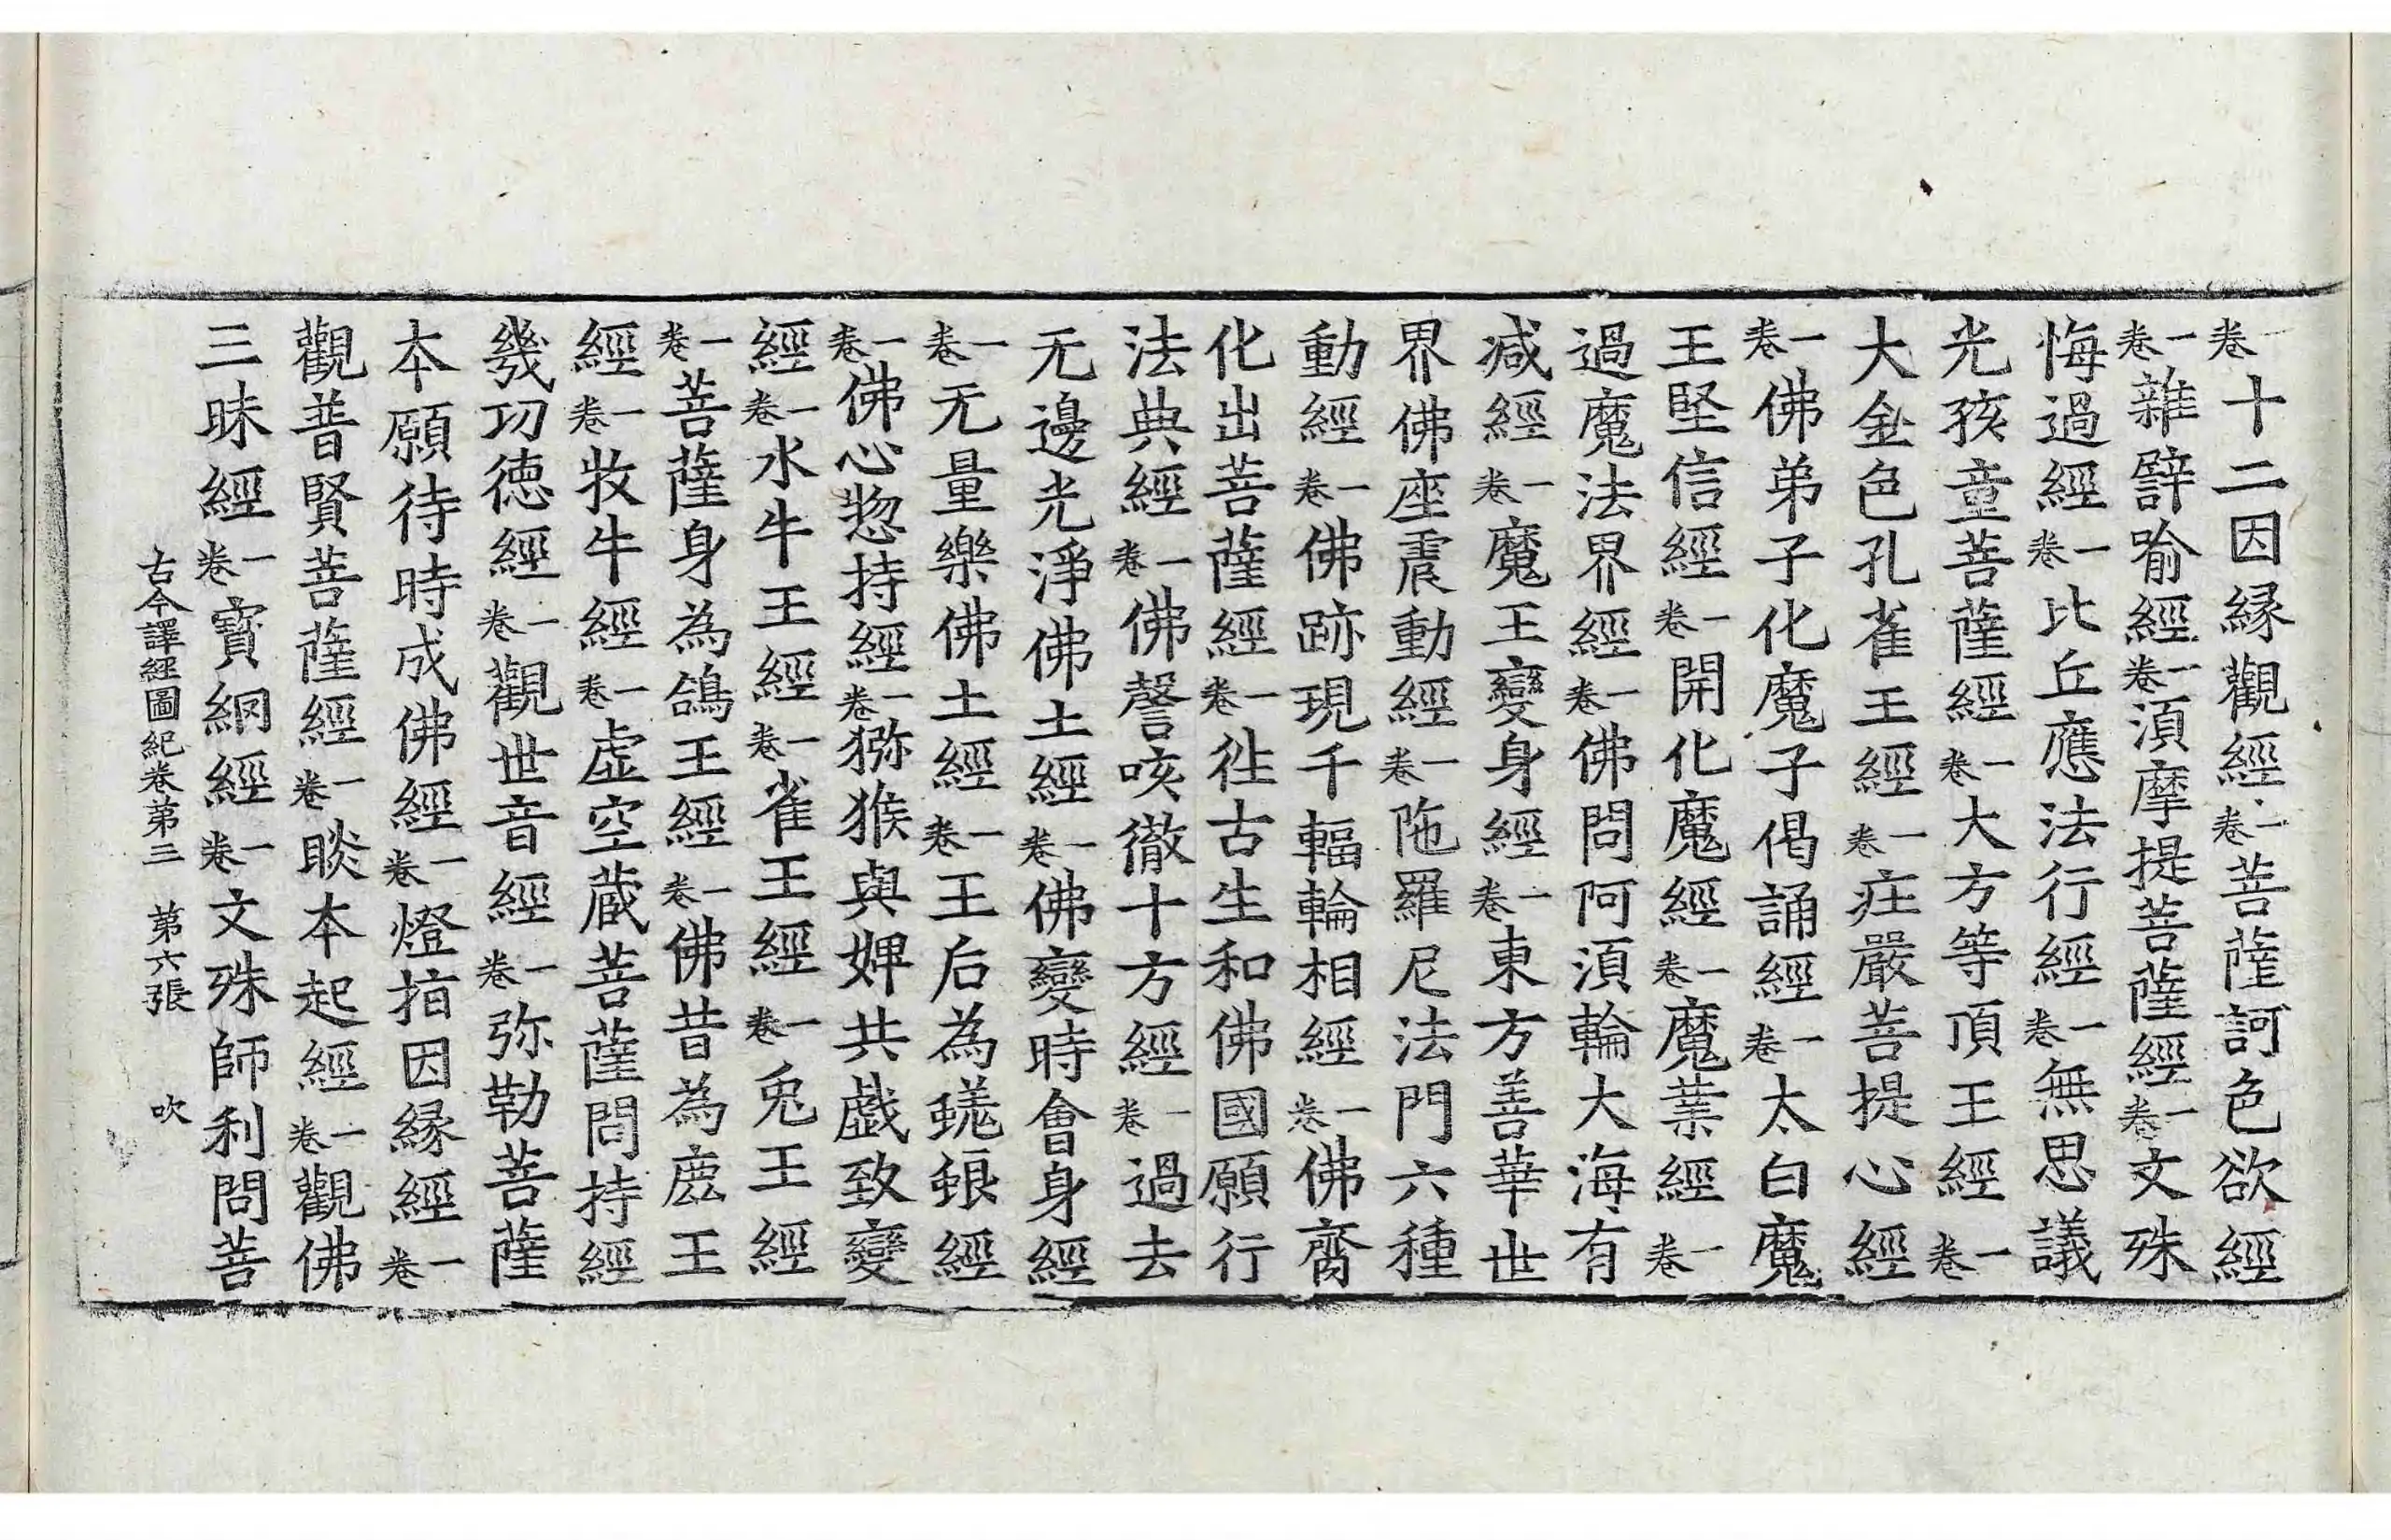 一卷十二因縁觀經一卷菩薩訶色欲經
一卷雜譬喻經一卷湏摩提菩薩經一卷文殊
悔過經一卷比丘應法行經一卷無思議
光孩童菩薩經一卷大方等頂王經一卷
大金色孔雀王經一卷庄嚴菩提心經
一卷佛弟子化魔子偈誦經一卷太白魔
王堅信經一卷開化魔經一卷魔業經一卷
過魔法界經一卷佛問阿湏輪大海有
减經一卷魔王變身經一卷東方善華世
界佛座震動經一卷陁羅尼法門六種
動經一卷佛跡現千輻輪相經一卷佛齊
化出菩薩經一卷徃古生和佛國願行
法典經一卷佛謦咳徹十方經一卷過去
无邊光淨佛土經一卷佛變時會身經
一卷无量樂佛土經一卷王后為蜣蜋經
一卷佛心惣持經一卷猕猴與婢共戯致變
經一卷水牛王經一卷雀王經一卷兎王經
一卷菩薩身為鴿王經一卷佛昔為鹿王
經一卷牧牛經一卷虚空蔵菩薩問持經
幾功徳經一卷觀世音經一卷弥勒菩薩
本願待時成佛經一卷燈指因縁經一卷
觀普賢菩薩經一卷睒本起經一卷觀佛
三昧經一卷寳網經一卷文殊師利問菩
古今譯經圖紀卷第三　第六張　吹